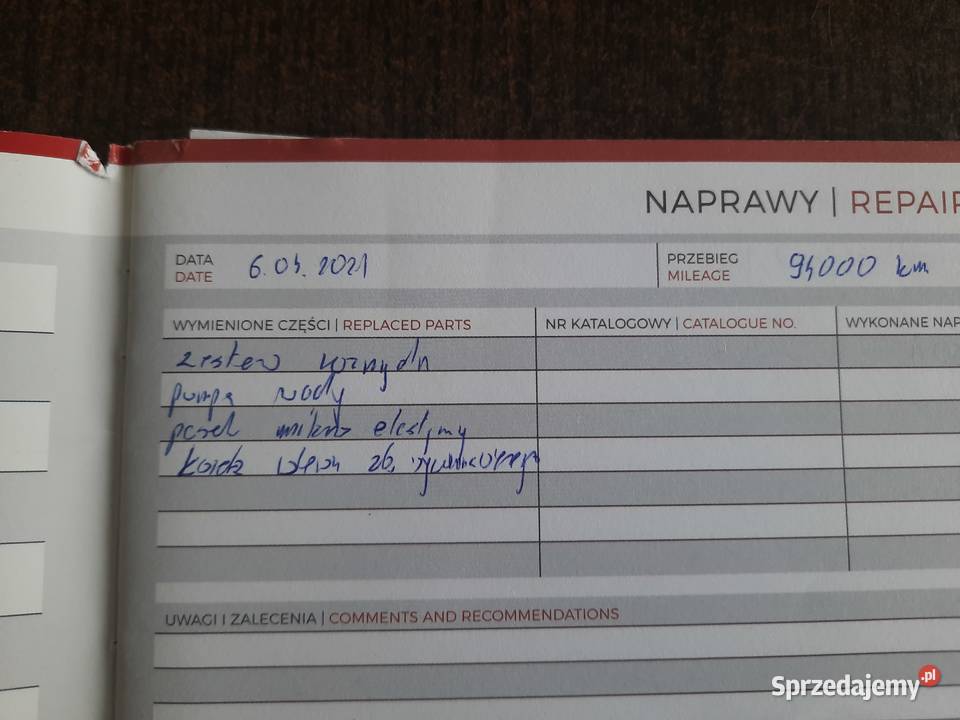 NAPRAWY | REPAIR
DATA
DATE
6.04.2021
PRZEBIEG
MILEAGE
94000 km
WYMIENIONE CZĘŚCI | REPLACED PARTS
NR KATALOGOWY | CATALOGUE NO.
WYKONANE NAP
zestaw rozrządu
pompa wody
pasek mikro elastyczny
korek zb. wyrównawczego
UWAGI I ZALECENIA | COMMENTS AND RECOMMENDATIONS
Sprzedajemy.pl